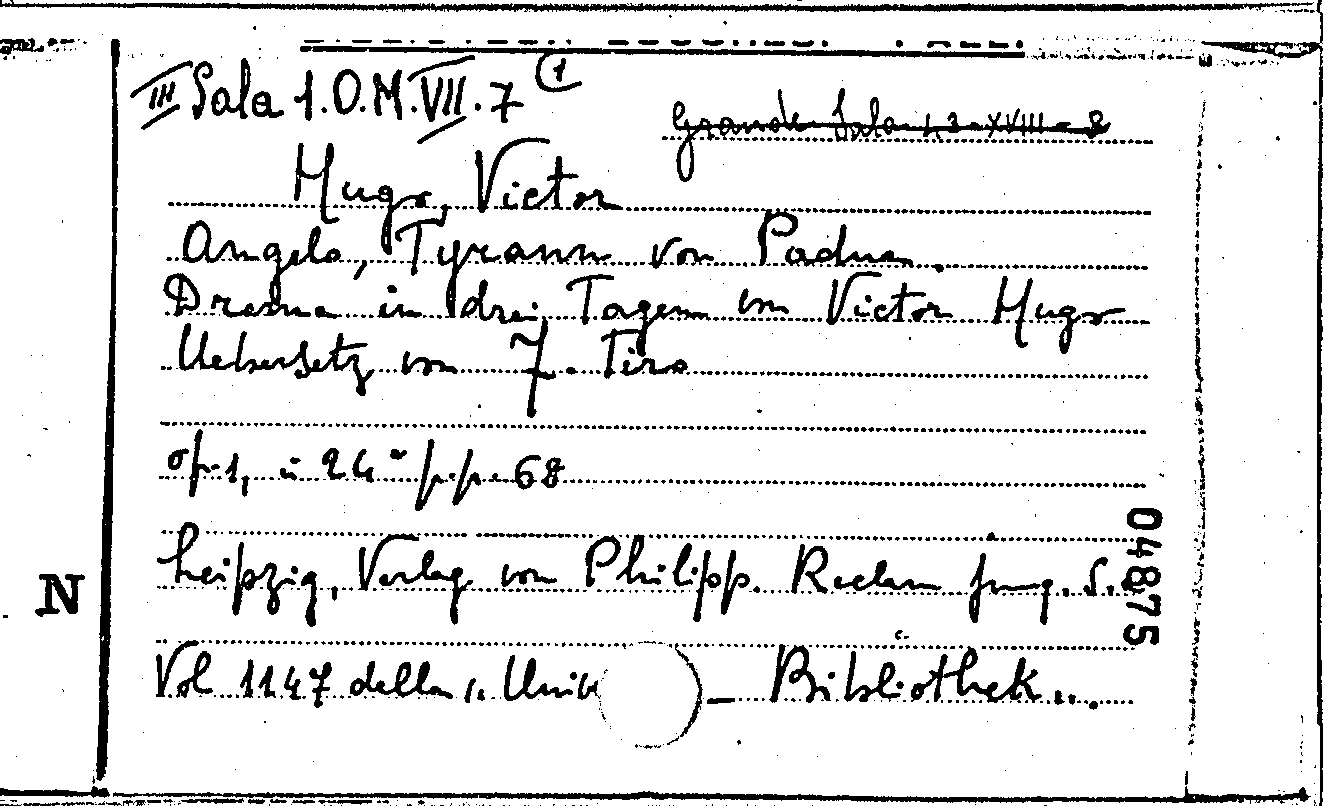 III Sala 1.O.M.VII.7 (1)
Grande Sala 1,2-XVIII-8
Hugo, Victor
Angelo, Tyrann von Padua.
Drama in drei Tagen von Victor Hugo
Uebersetz von J. Tiro
op. 1, in 24° p.p. 68
Leipzig, Verlag von Philipp. Reclam jung. S.
Vol 1147 della "Univ - Bibliothek".
N
04875